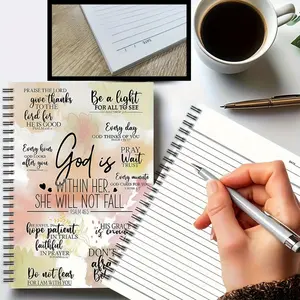 PRAISE THE LORD
give thanks
to the
lord for
HE IS GOOD
Be a light
FOR ALL TO SEE
Every day
GOD THINKS OF YOU
Every hour
GOD LOOKS
after you
PRAY
WAIT
TRUST
Every minute
GOD CARES FOR YOU
God is
WITHIN HER,
SHE WILL NOT FALL
PSALM 46:5
hope patient
IN TRIALS
faithful
IN PRAYER
HIS GRACE
DON'T
Do not fear
FOR I AM WITH YOU